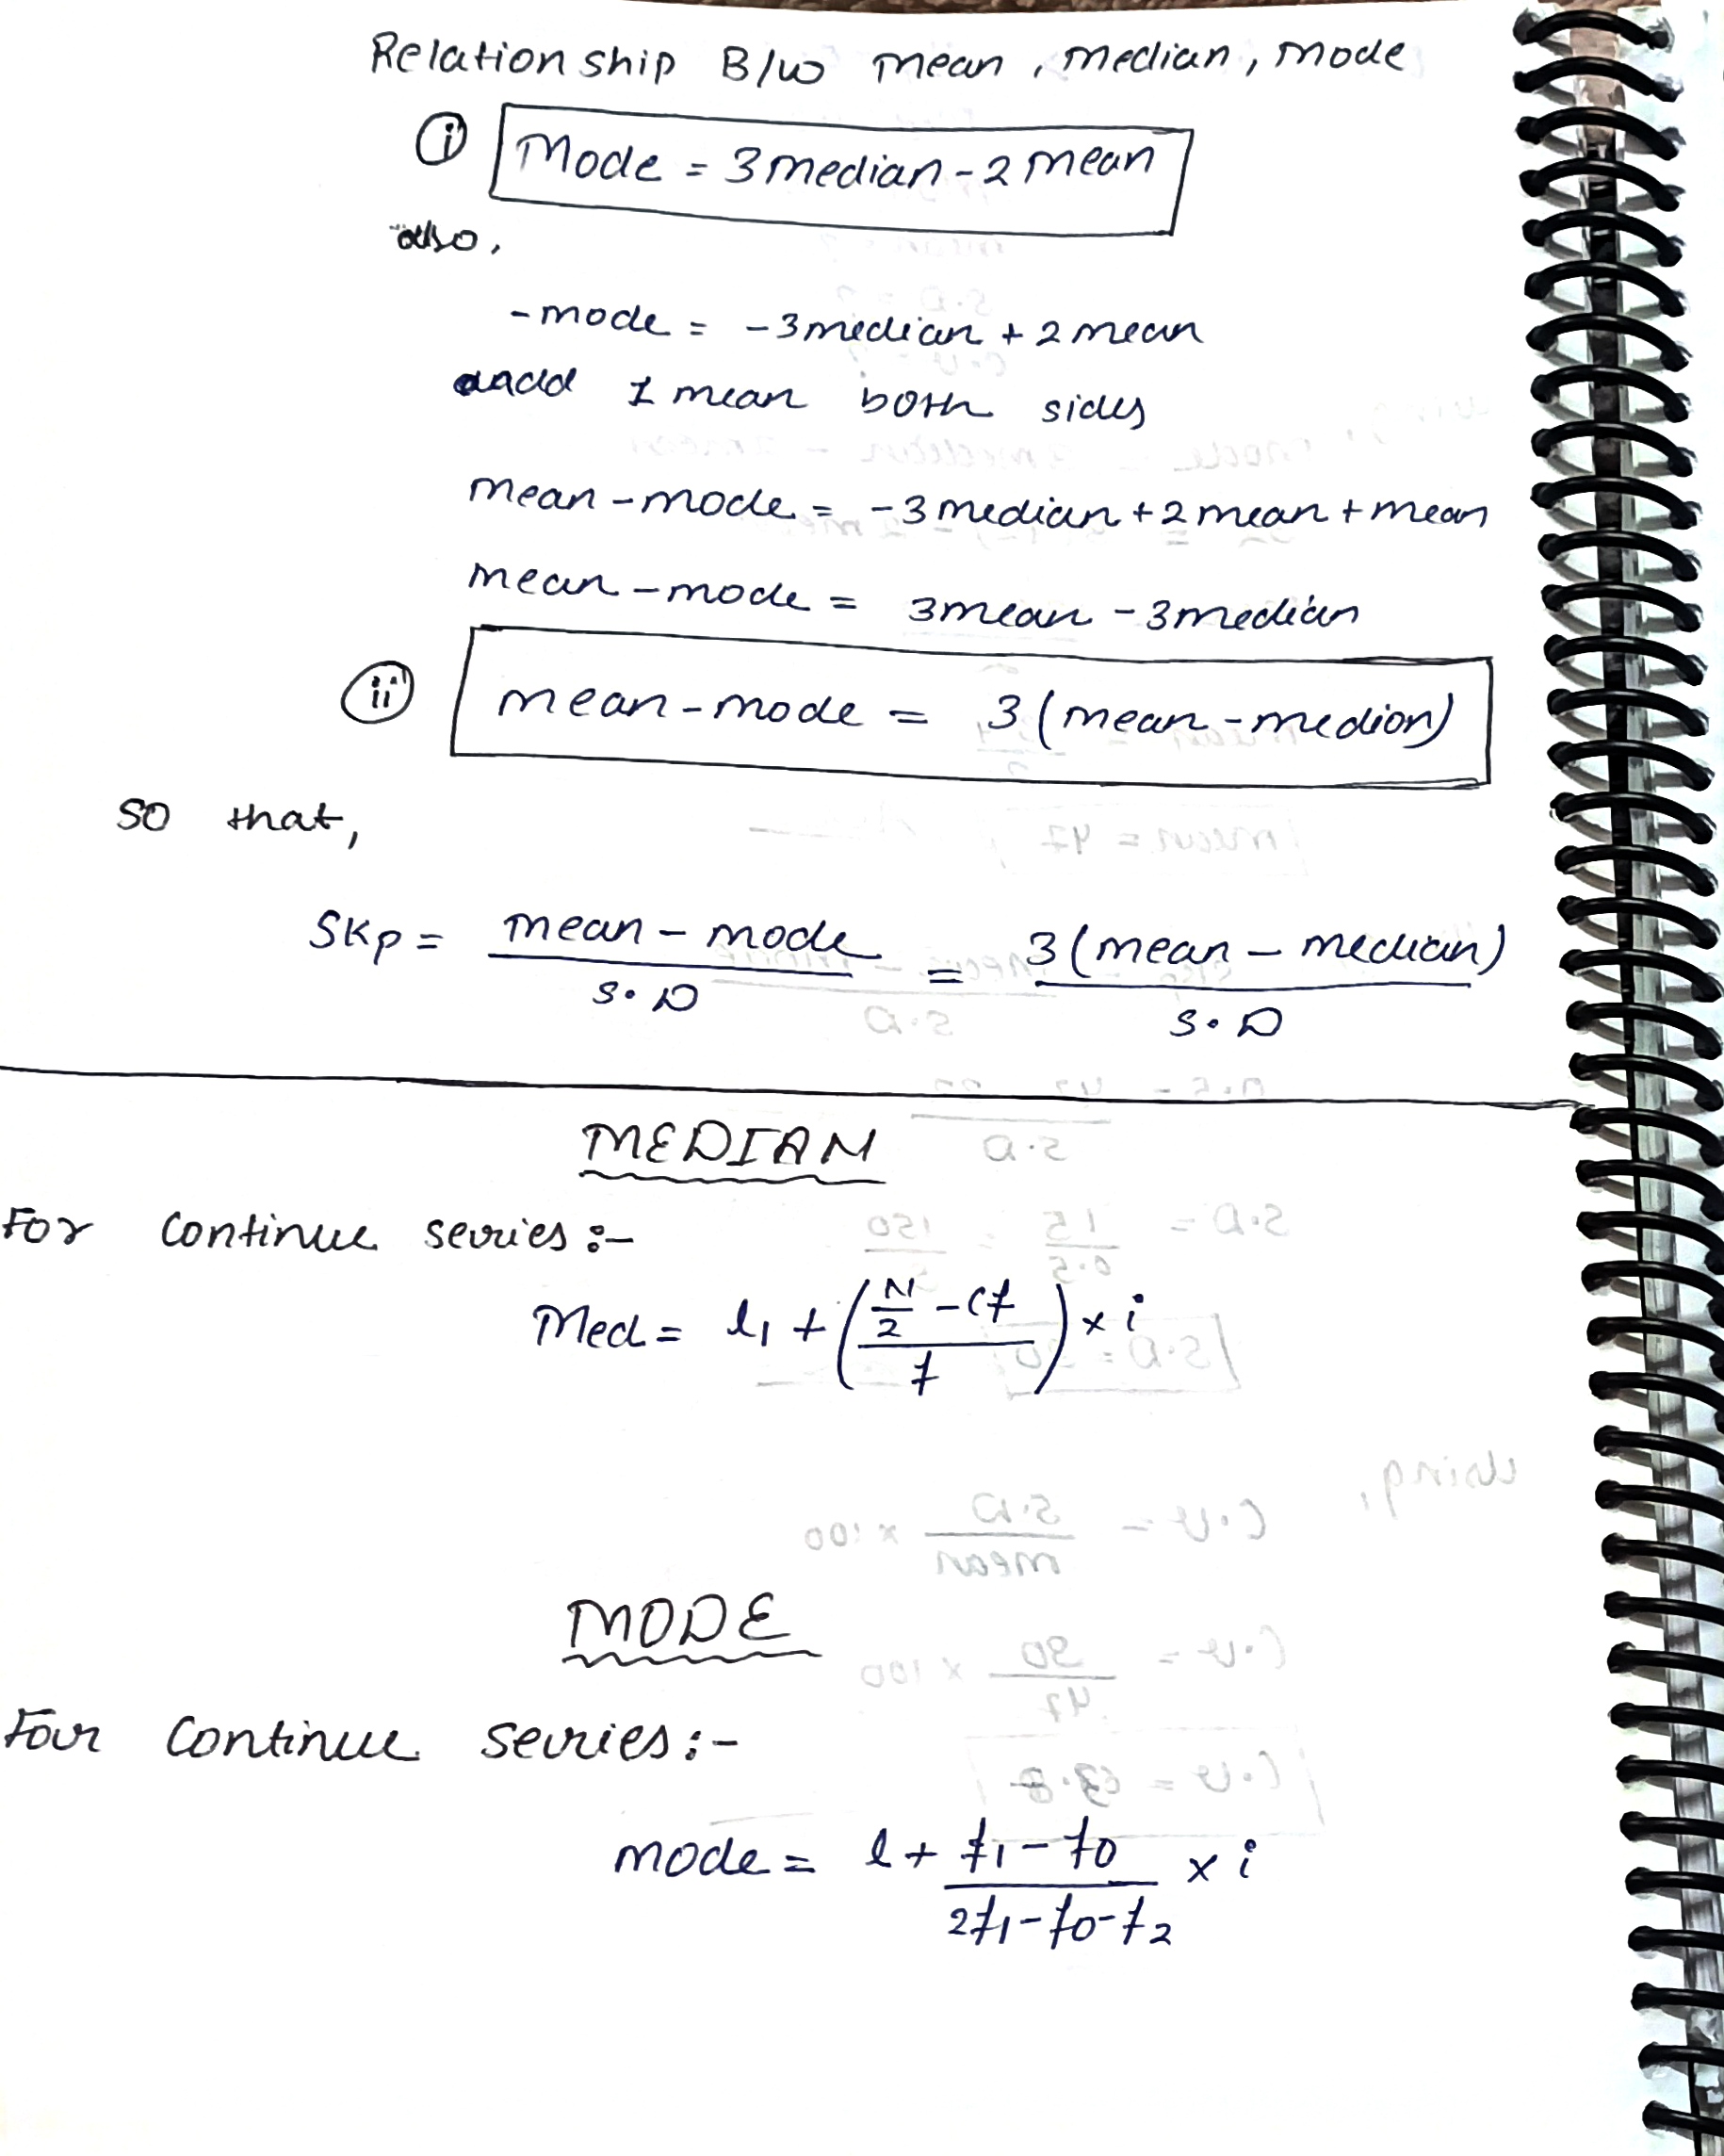 Relationship B/w mean, median, mode
(i) Mode = 3 median - 2 mean
also,
- mode = - 3 median + 2 mean
add 1 mean both sides
mean - mode = - 3 median + 2 mean + mean
mean - mode = 3 mean - 3 median
(ii) mean - mode = 3 (mean - medion)
so that,
SKp = mean - mode / S.D = 3 (mean - median) / S.D
MEDIAN
For continue series :-
Med = l1 + ( (N/2 - cf) / f ) × i
MODE
For continue series :-
mode = l + (f1 - f0) / (2f1 - f0 - f2) × i